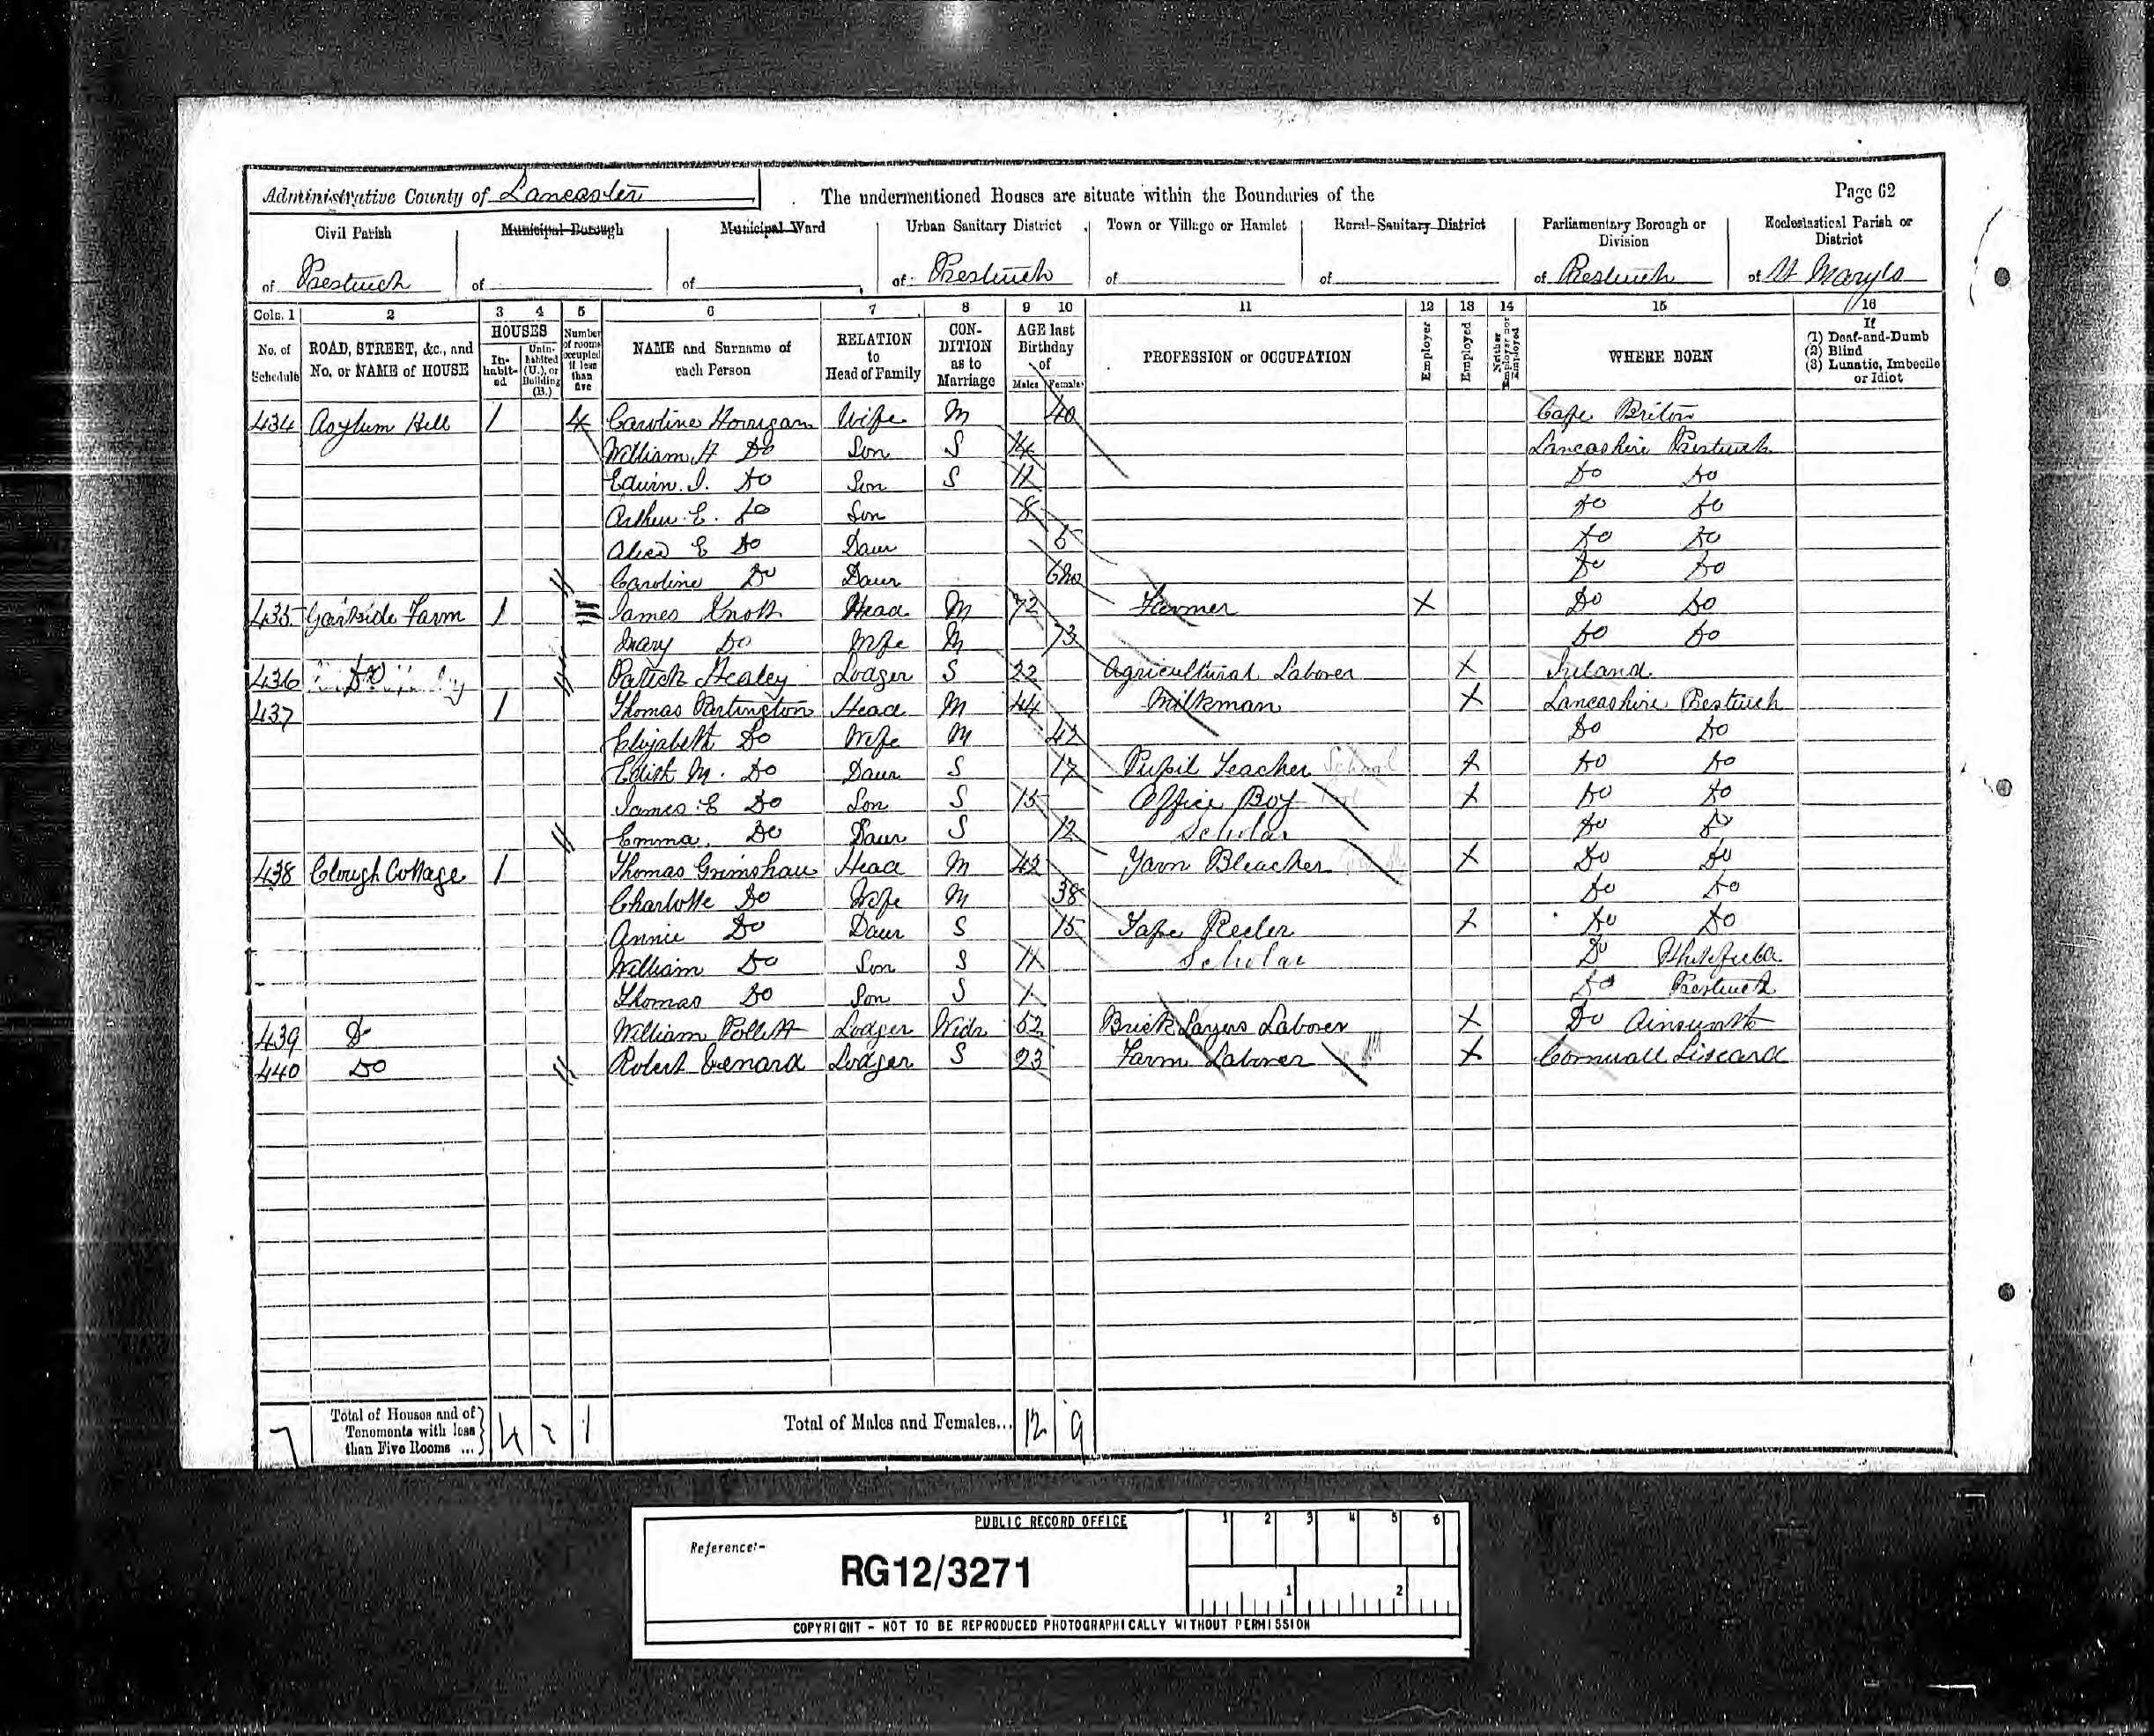 Administrative County of Lancaster The undermentioned Houses are situate within the Boundaries of the Page 62
Civil Parish Municipal Borough Municipal Ward Urban Sanitary District Town or Village or Hamlet Rural Sanitary District Parliamentary Borough or Division Ecclesiastical Parish or District
of Prestwich of of of Prestwich of of of Prestwich of St Mary's
Cols. 1 2 3 4 5 6 7 8 9 10 11 12 13 14 15 16
No. of Schedule ROAD, STREET, &c., and No. or NAME of HOUSE HOUSES In-habit-ed Unin-habited (U.), or Building (B.) Number of rooms occupied if less than five NAME and Surname of each Person RELATION to Head of Family CON-DITION as to Marriage AGE last Birthday of Males Females PROFESSION or OCCUPATION Employer Employed Neither Employer nor Employed WHERE BORN If (1) Deaf-and-Dumb (2) Blind (3) Lunatic, Imbecile or Idiot
434 Asylum Hill 1 4 Caroline Horrigan Wife M 40 Cape Briton
William H Do Son S 14 Lancashire Prestwich
Edwin J. Do Son S 11 Do Do
Arthur E. Do Son 8 Do Do
Alice E Do Daur Do Do
Caroline Do Daur 6mo Do Do
435 Gartside Farm 1 James Knott Head M 72 Farmer X Do Do
Mary Do Wife M 73 Do Do
436 Do Patick Healey Lodger S 22 Agricultural Laborer X Ireland
437 1 Thomas Partington Head M 44 Milkman X Lancashire Prestwich
Elizabeth Do Wife M 42 Do Do
Edith M. Do Daur S 17 Pupil Teacher School X Do Do
James E Do Son S 15 Office Boy X Do Do
Emma Do Daur S 12 Scholar Do Do
438 Clough Cottage 1 Thomas Grimshaw Head M 42 Yarn Bleacher X Do Do
Charlotte Do Wife M 38 Do Do
Annie Do Daur S 15 Tape Reeler X Do Do
William Do Son S 11 Scholar Do Whitefield
Thomas Do Son S 1 Do Prestwich
439 Do William Pollitt Lodger Widr 52 Brick Layers Laborer X Do Ainsworth
440 Do Robert Lodger S 23 Farm Laborer X Cornwall Liscard
7 Total of Houses and of Tenements with less than Five Rooms ... 4 1 Total of Males and Females... 12 9
PUBLIC RECORD OFFICE
1 2 3 4 5 6
Reference:-
RG12/3271
1 2
COPYRIGHT - NOT TO BE REPRODUCED PHOTOGRAPHICALLY WITHOUT PERMISSION